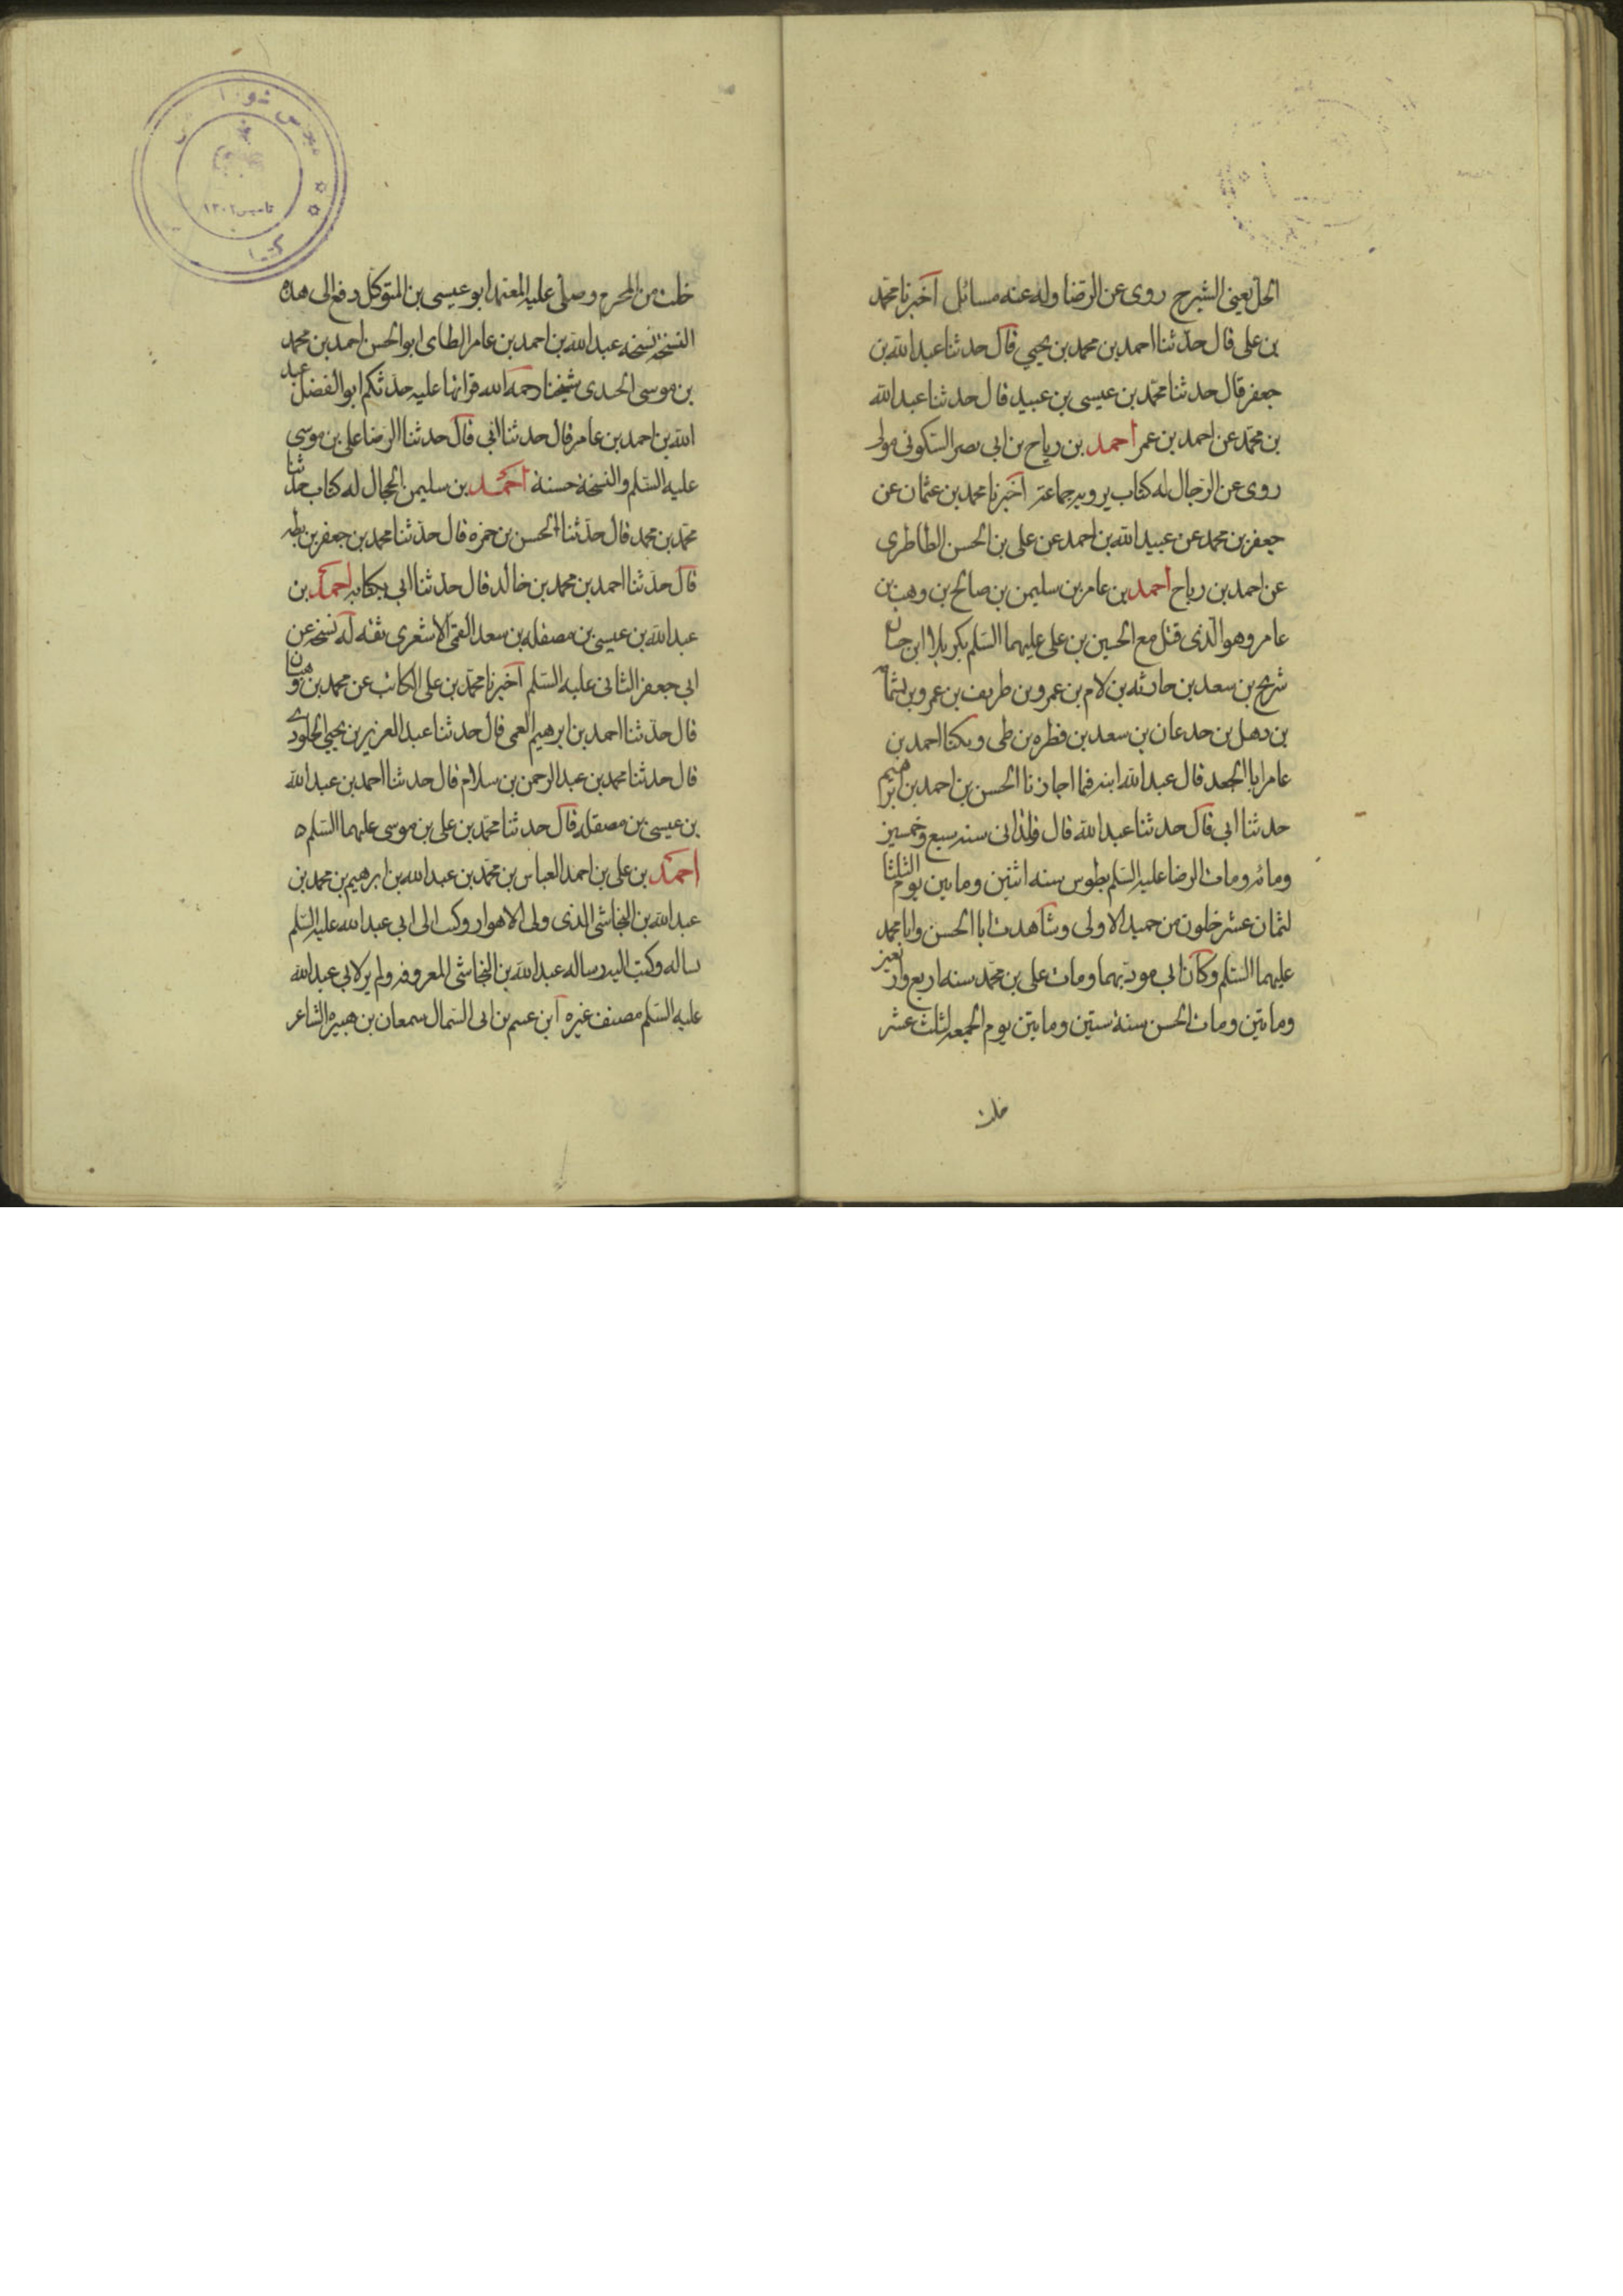 الحل يعنى الشيرج روى عن الرضا وله عنه مسائل اخبرنا محمد
بن على قال حدثنا احمد بن محمد بن يحيى قال حدثنا عبد الله بن
جعفر قال حدثنا محمد بن عيسى بن عبيد قال حدثنا عبد الله
بن محمد عن احمد بن عمر احمد بن رياح بن ابى نصر السكونى مولى
روى عن الرجال له كتاب يرويه جماعة اخبرنا محمد بن عثمان عن
جعفر بن محمد عن عبيد الله بن احمد عن على بن الحسن الطاطرى
عن احمد بن رياح احمد بن عامر بن سليمن بن صالح بن وهب بن
عامر وهو الذى قتل مع الحسين بن على عليهما السلم بكربلا ابن حسان
شريح بن سعد بن حارثه بن لام بن عمرو بن طريف بن عمرو بن ثمامه
بن دهل بن حدعان بن سعد بن فطره بن طى ويكنا احمد بن
عامر ابا الجعد قال عبد الله ابنه فما اجازنا الحسن بن احمد بن ابرهيم
حدثنا ابى قال حدثنا عبد الله قال ولد ابى سنه سبع وخمسين
ومائه ومات الرضا عليه السلم بطوس سنه اثنين ومايتين يوم الثلثا
لثمان عشر خلون من جميد الاولى وشاهدت ابا الحسن وابا محمد
عليهما السلم وكان ابى موذنهما ومات على بن محمد سنه اربع واربعين
ومايتين ومات الحسن سنة ستين ومايتين يوم الجمعه لثلث عشر
خلت
خلت من المحرم وصلى عليه المعتمد ابو عيسى بن المتوكل دفع الى هذه
النسخه نسخه عبد الله بن احمد بن عامر الطاى ابو الحسن احمد بن محمد
بن موسى الجندى شيخنا رحمه الله قراتها عليه حدثكم ابو الفضل عبد
الله بن احمد بن عامر قال حدثنا ابى قال حدثنا الرضا على بن موسى
عليه السلم والنسخة حسنة احمد بن سليمن الحجال له كتاب حدثنا
محمد بن محمد قال حدثنا الحسن بن حمزه قال حدثنا محمد بن جعفر بن بطه
قال حدثنا احمد بن محمد بن خالد قال حدثنا ابى بكتابه احمد بن
عبد الله بن عيسى بن مصقله بن سعد القمى الاشعرى ثقه له نسخه عن
ابى جعفر الثانى عليه السلم اخبرنا محمد بن على الكاتب عن محمد بن وهبان
قال حدثنا احمد بن ابرهيم العمى قال حدثنا عبد العزيز بن يحيى الجلودى
قال حدثنا محمد بن عبد الرحمن بن سلام قال حدثنا احمد بن عبد الله
بن عيسى بن مصقله قال حدثنا محمد بن على بن موسى عليهما السلم ه
احمد بن على بن احمد العباس بن محمد بن عبد الله بن ابرهيم بن محمد بن
عبد الله بن النجاشى الذى ولى الاهواز وكتب الى ابى عبد الله عليه السلم
يساله وكتب اليه رساله عبد الله بن النجاشى المعروفه ولم ير لابى عبد الله
عليه السلم مصنف غيره ابن عسم بن ابى السمال سمعان بن هبيره الشاعر
تاسيس ١٣٠٢